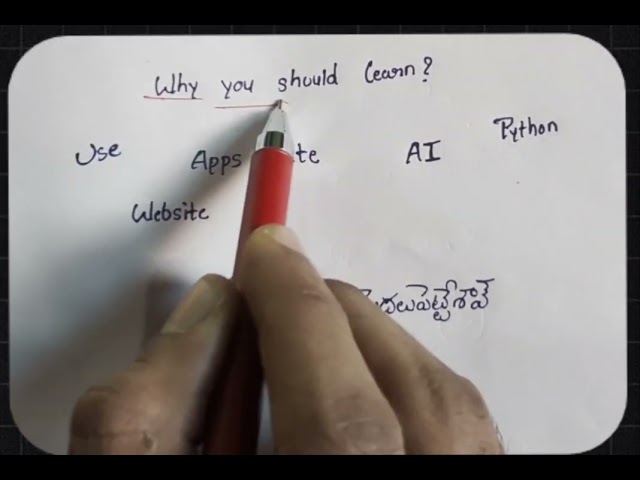 Why you should learn?
Python
Use Apps te AI
Website
మొదలుపెట్టేశావే